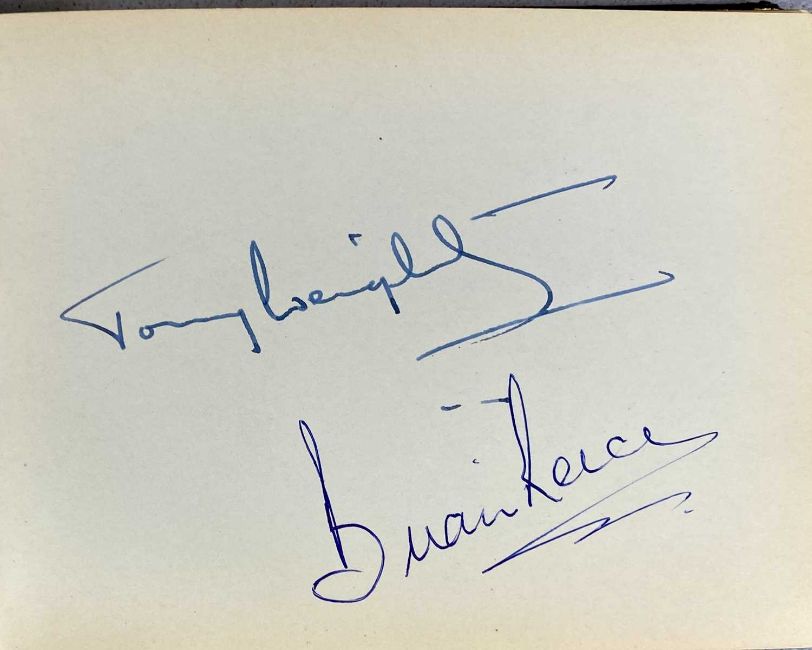 Tony Wright
Brian Reece